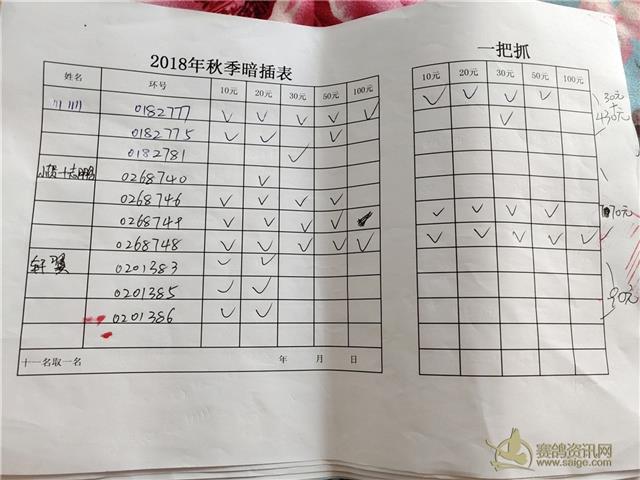 2018年秋季暗插表
姓名 环号 10元 20元 30元 50元 100元
川川 0182777 ✓ ✓ ✓ ✓ ✓
0182775 ✓ ✓ ✓
0182781 ✓
0268740 ✓
0268746 ✓ ✓ ✓ ✓
0268749 ✓ ✓ ✓ ✓
0268748 ✓ ✓ ✓ ✓ ✓
0201383 ✓ ✓
0201385 ✓ ✓
0201386 ✓ ✓
十一名取一名 年 月 日
一把抓
10元 20元 30元 50元 100元
✓ ✓ ✓ ✓
✓
✓ ✓ ✓ ✓
✓ ✓ ✓ ✓ ✓
90元
赛鸽资讯网
www.saige.com